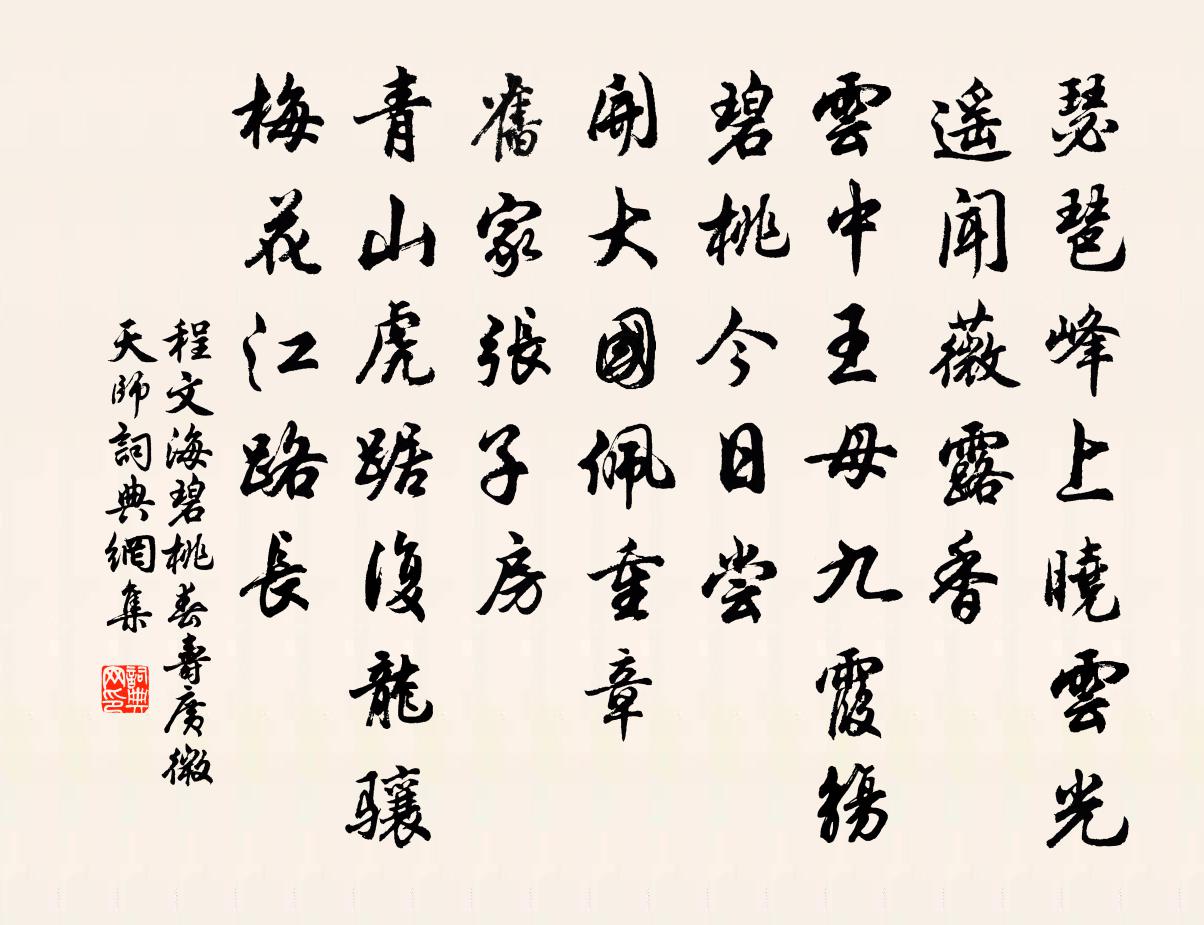 琵琶峰上曉雲光
遥聞薇露香
雲中王母九霞觴
碧桃今日尝
開大國佩重章
舊家張子房
青山虎踞復龍驤
梅花江路長
程文海碧桃春壽廣微
天師詞典網集
詞典网印